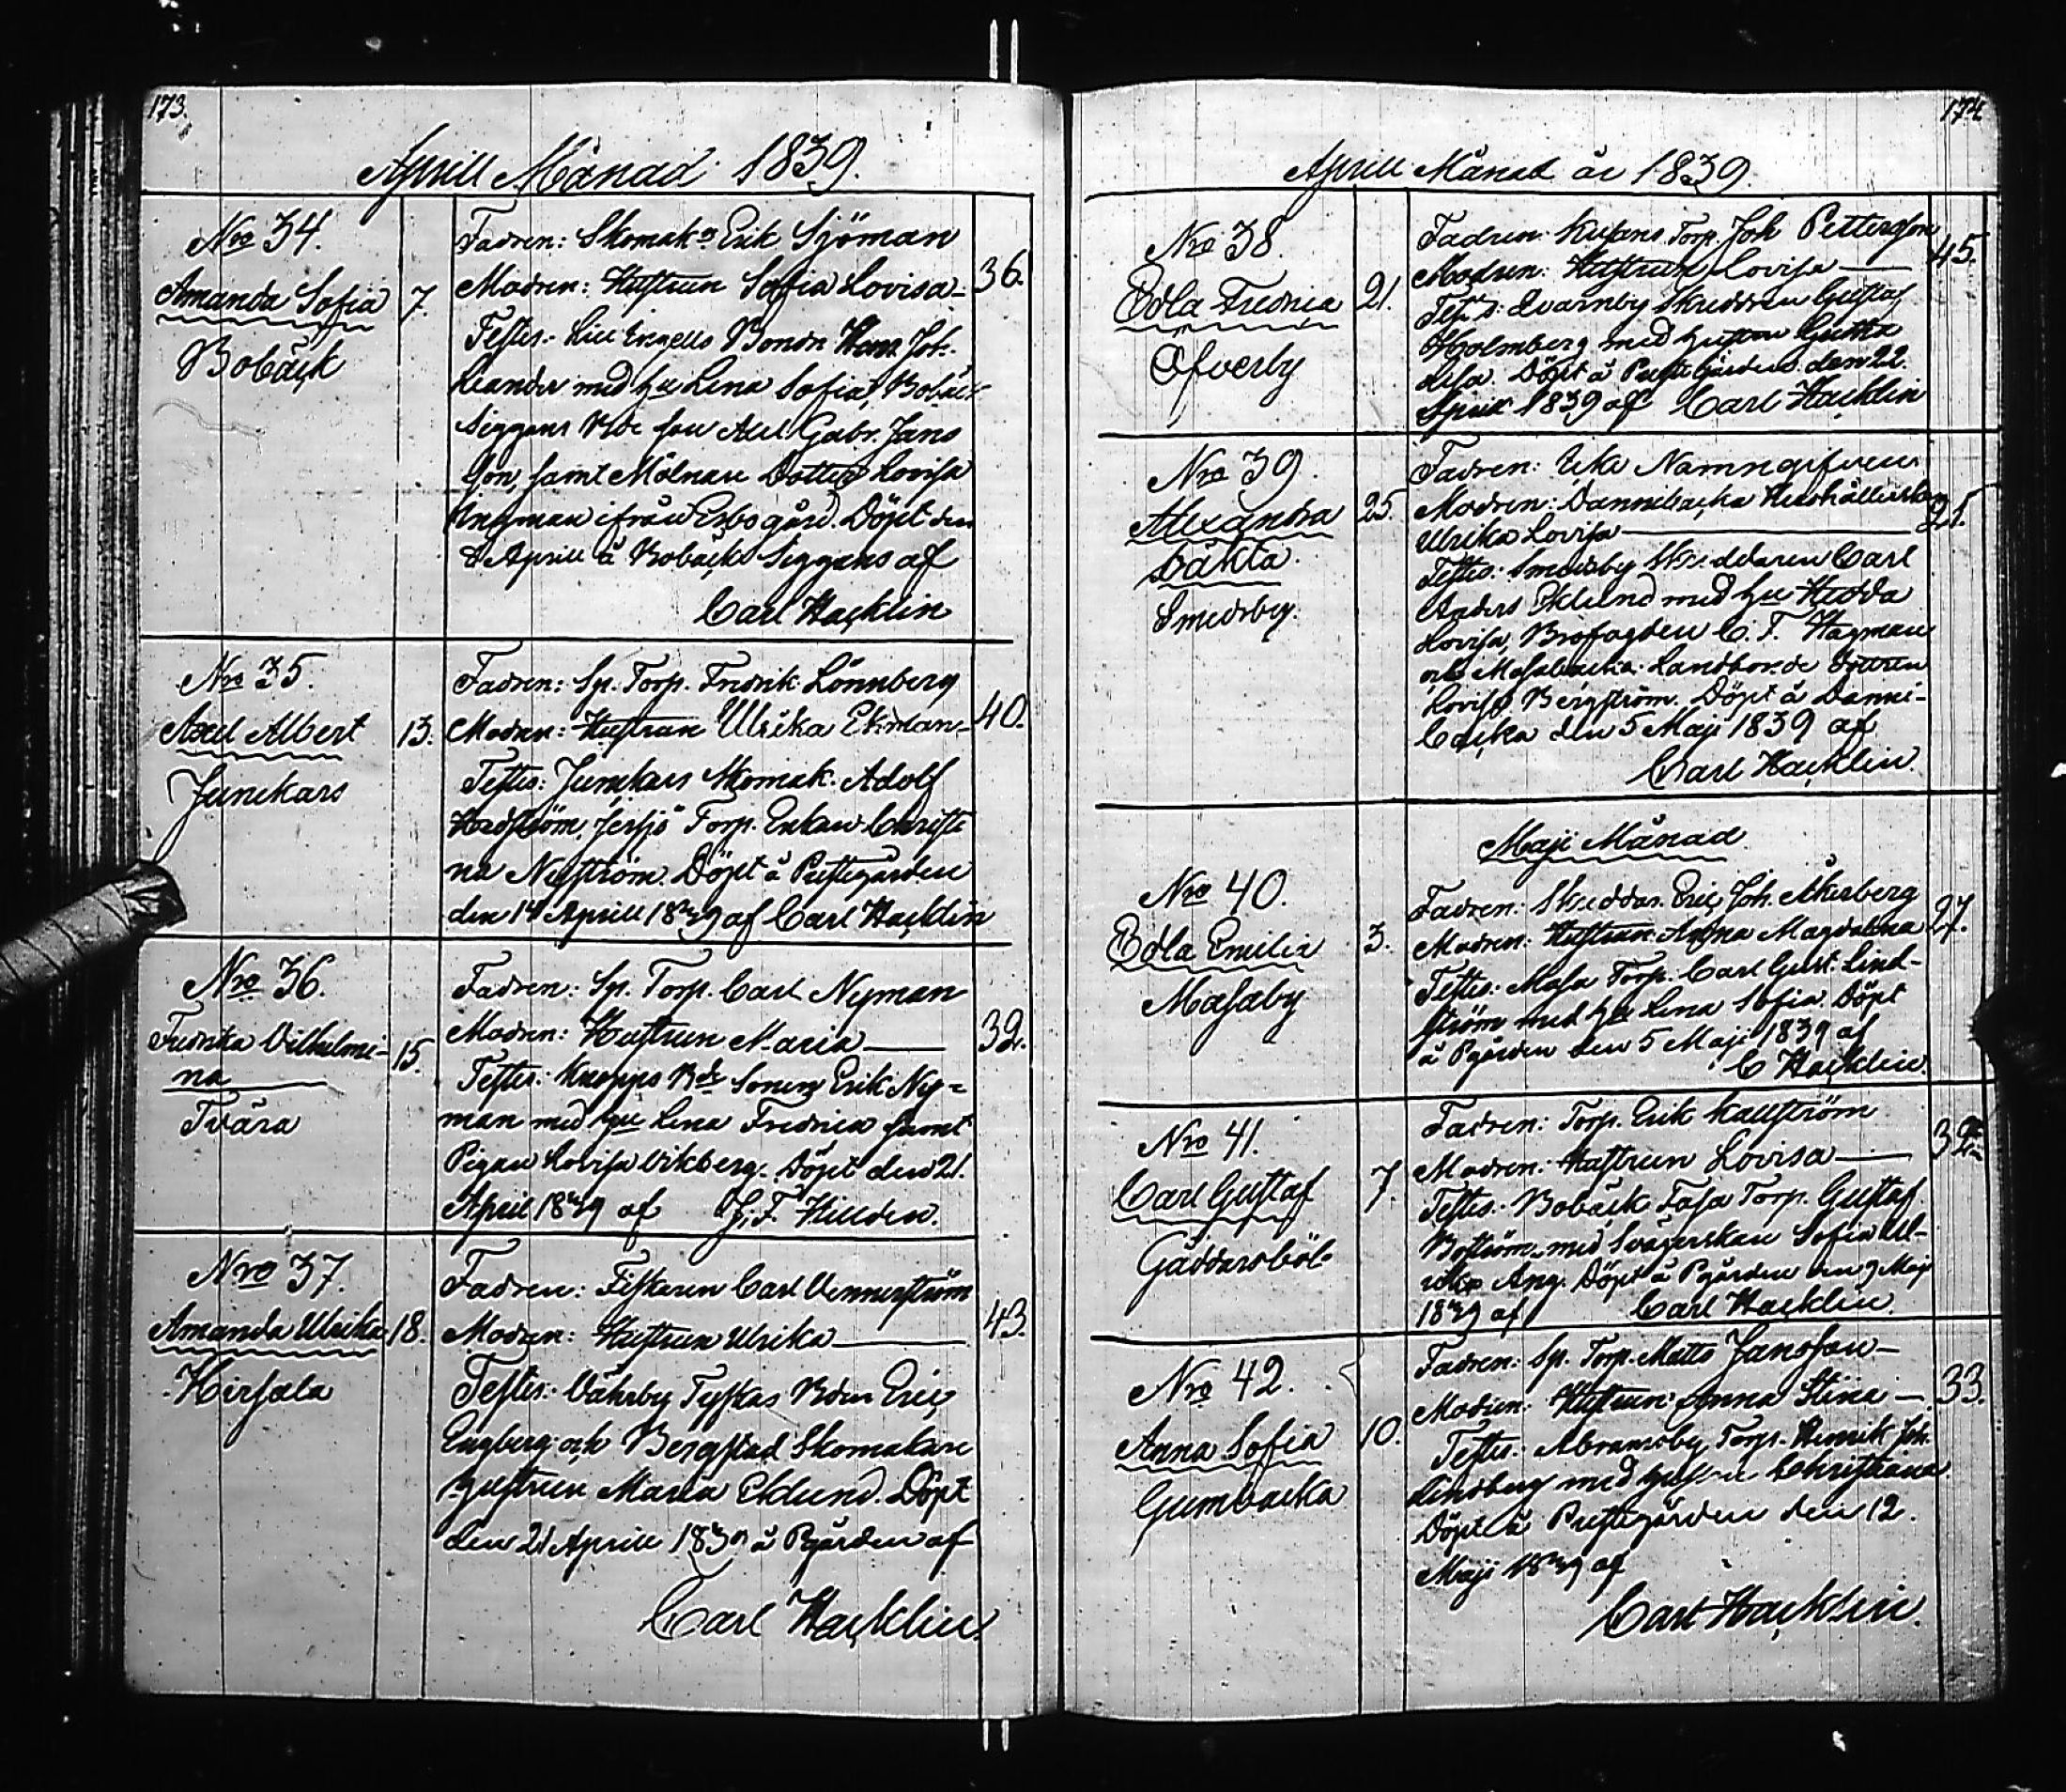 173.
Aprill Månad 1839.
Nro 34.
Amanda Sofia
Bobäck
7.
Fadren: Skomak:n Erik Sjöman
Modren: Hustrun Sofia Lovisa
36.
Testes: Lill Engells Bondn Hans Joh.
Leander med hu Lena Sofia, Bobäck
Siggans Bde son Axel Gabr. Jans
son, samt Mölnare Dotter Lovisa
Ingman ifrån Esbogård. Döpt den
8 Aprill å Bobäck Siggans af
Carl Hacklin
Nro 35.
Axel Albert
Junckars
13.
Fadren: Sp. Torp. Fredrik Lönnberg
Modren: Hustrun Ulrika Ekman
40.
Testes: Junckars Skomak. Adolf
Hedström, Torp. Enkan Christi
na Nyström. Döpt å Prestegården
den 14 Aprill 1839 af Carl Hacklin
Nro 36.
Fredrika Vilhelmi-
na
Tvära
15.
Fadren: Sp. Torp. Carl Nyman
Modren: Hustrun Maria
32.
Testes: Knapps Bde Sonen Erik Ny=
man med hu Lena Fredrica samt
Pigan Lovisa Vikberg. Döpt den 21.
April 1839 af J. F. Hillden.
Nro 37.
Amanda Ulrika
Hirsala
18.
Fadren: Fiskaren Carl Vennerström
Modren: Hustrun Ulrika
43.
Testes: Våhrby Tysskas Bden Eric
Engberg och Bergstad Skomakare
Hustrun Maria Eklund. Döpt
den 21 Aprill 1839 å Pgården af
Carl Hacklin.
174
Aprill Månad år 1839.
Nro 38.
Edla Fredrica
Öfverby
21.
Fadren: Torp. Joh Petterson
Modren: Hustrun Lovisa
45.
Test:s: Qvarnby Skreddren Gustaf
Holmberg med hustrun Greta
Lisa. Döpt å Prestegården den 22.
April 1839 af Carl Hacklin
Nro 39.
Alexandra
oäkta.
Smedsby.
25.
Fadren: Icke Namngifven
Modren: Dannsbacka Hushållerskan
Ulrika Lovisa
21.
Testes: Smedsby Skreddaren Carl
Anders Eklund med hu Hedda
Lovisa, Brofogden C. F. Hagman
och Masabacka Landbonde dottren
Lovisa Bergström. Döpt å Danns-
backa den 5 Maji 1839 af
Carl Hacklin.
Maji Månad
Nro 40.
Edla Emilia
Masaby
3.
Fadren: Skreddar. Eric Joh. Åkerberg
Modren: Hustrun Anna Magdalena
27.
Testes: Masa Torp. Carl Gust. Lind-
ström med hu Lena Sofia. Döpt
å Pgården den 5 Maji 1839 af
C Hacklin.
Nro 41.
Carl Gustaf
Gäddarsböle
7.
Fadren: Torp. Erik Källström
Modren: Hustrun Lovisa
32
Testes: Bobäck Fasa Torp. Gustaf
Boström med Svägerskan Sofia Ul-
rika Ang. Döpt å Pgården den 9 Maji
1839 af Carl Hacklin.
Nro 42.
Anna Sofia
Gumbacka
10.
Fadren: Sp. Torp. Matts Jansson
Modren: Hustrun Anna Stina
33.
Testes: Abramsby Torp. Henrik Joh.
Lindberg med hustrun Christiana
Döpt å Prestegården den 12.
Maji 1839 af
Carl Hacklin.